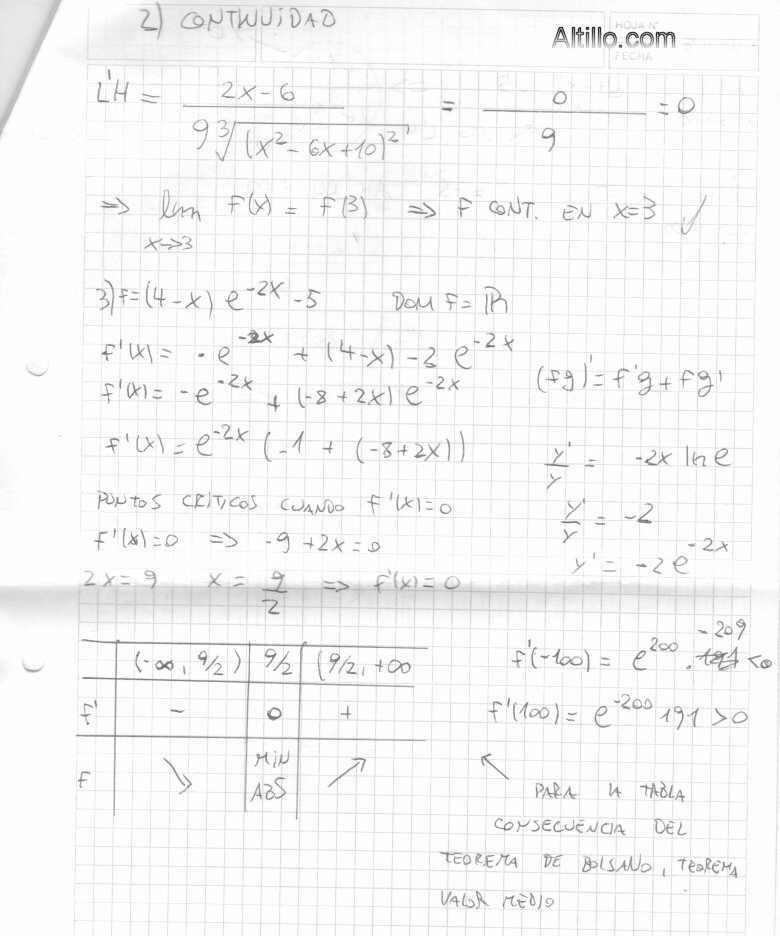 2) CONTINUIDAD
Altillo.com
HOJA Nº
FECHA
L'H = 2x-6 / 9∛(x²-6x+10)² = 0 / 9 = 0
⇒ lim x→3 F(x) = F(3) ⇒ F CONT. EN x=3 ✓
3) F=(4-x) e^-2x -5 DOM F= ℝ
f'(x) = · e^-2x + (4-x) -2 e^-2x
f'(x) = -e^-2x + (-8+2x) e^-2x (fg)'= f'g + fg'
f'(x) = e^-2x (-1 + (-8+2x)) y'/y = -2x ln e
PUNTOS CRÍTICOS CUANDO f'(x)=0 y'/y = -2
f'(x)=0 ⇒ -9+2x=0 y' = -2e^-2x
2x=9 x = 9/2 ⇒ f'(x)=0
(-∞, 9/2) 9/2 (9/2, +∞ f'(-100) = e^200 . -209 <0
f' - 0 + f'(100) = e^-200 191 >0
F ↘ MIN ABS ↗ ↖ PARA LA TABLA
CONSECUENCIA DEL
TEOREMA DE BOLSANO, TEOREMA
VALOR MEDIO